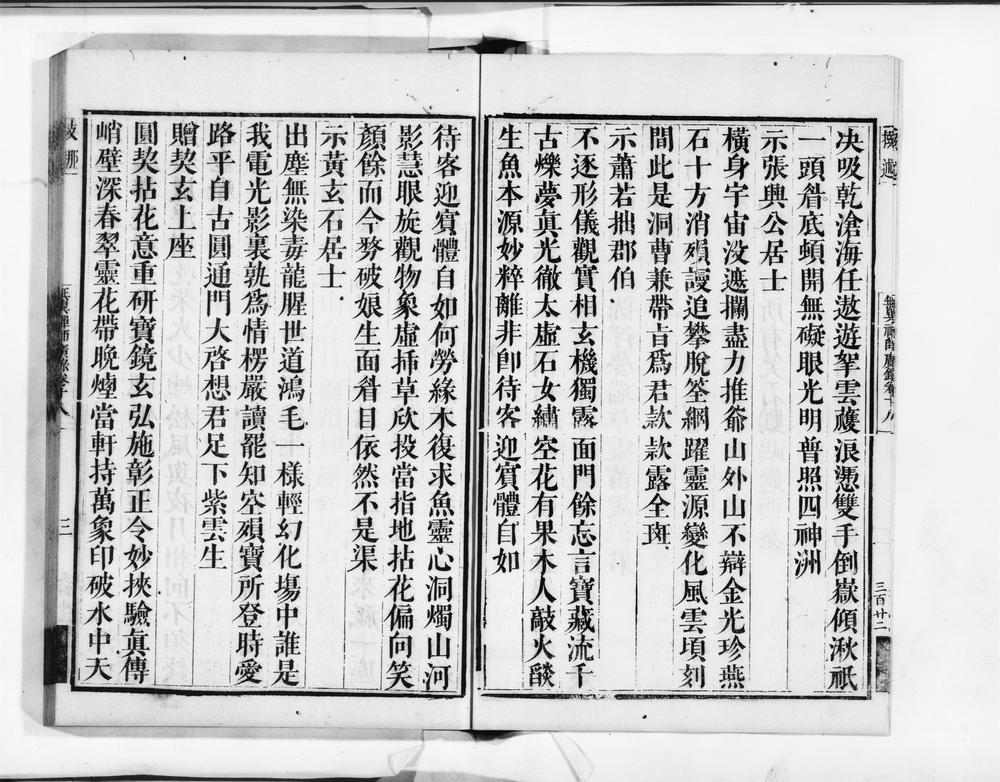 決吸乾滄海任遨遊挐雲䕶浪慿雙手倒嶽傾湫祇
一頭眉底頓開無礙眼光明普照四神洲
示張興公居士
橫身宇宙没遮攔盡力推爺山外山不辯金光珍燕
石十方消殞謾追攀脫筌綱躍靈源變化風雲頃刻
間此是洞曹兼帶旨爲君款款露全斑
示蕭若拙郡伯
不逐形儀觀實相玄機獨露面門餘忘言寶藏流千
古爍夢眞光徹太虛石女繡空花有果木人敲火燄
生魚本源妙粹離非卽待客迎賓體自如
待客迎賓體自如何勞緣木復求魚靈心洞燭山河
影慧眼旋觀物象虛揷草欣投當指地拈花偏向笑
顏餘而今努破娘生面眉目依然不是渠
示黃玄石居士
出塵無染毒龍腥世道鴻毛一樣輕幻化塲中誰是
我電光影裏孰爲情楞嚴讀罷知空殞寶所登時愛
路平自古圓通門大啓想君足下紫雲生
贈契玄上座
圓契拈花意重研寶鏡玄弘施彰正令妙挾驗眞傳
峭壁深春翠靈花帶晚煙當軒持萬象印破水中天
三百廿二
三